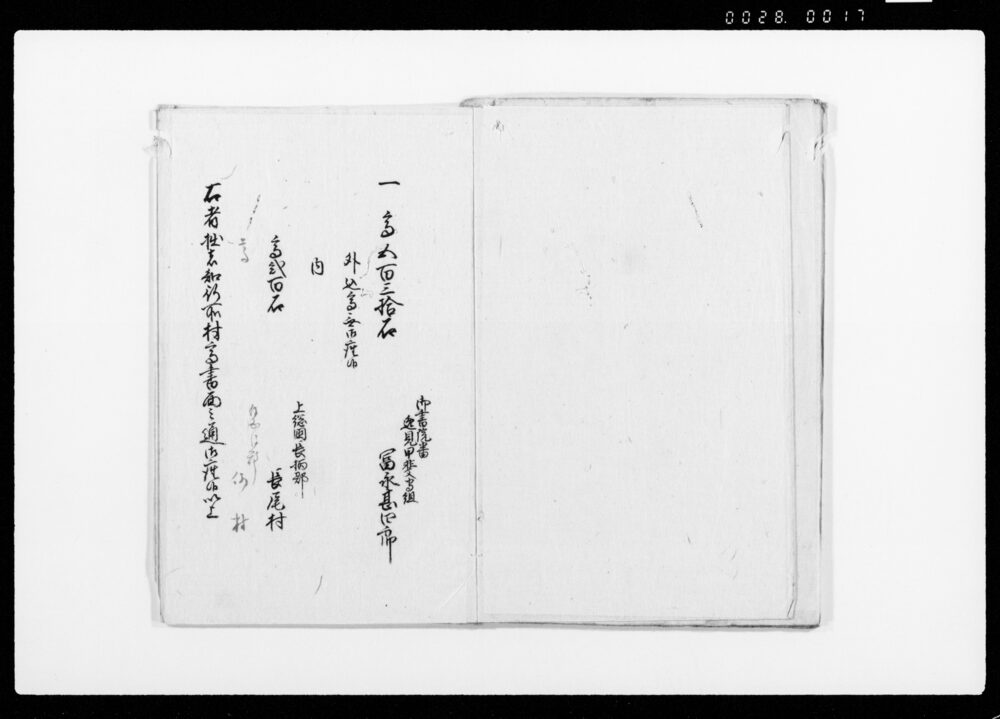 0028. 0017
御書院番
逸見甲斐守組
冨永甚四郎
一 高五百三拾石
外込高無御座候
内
上総国長柄郡
高弐百石 長尾村
高
何村
右者拙者知行所村高書面之通御座候以上